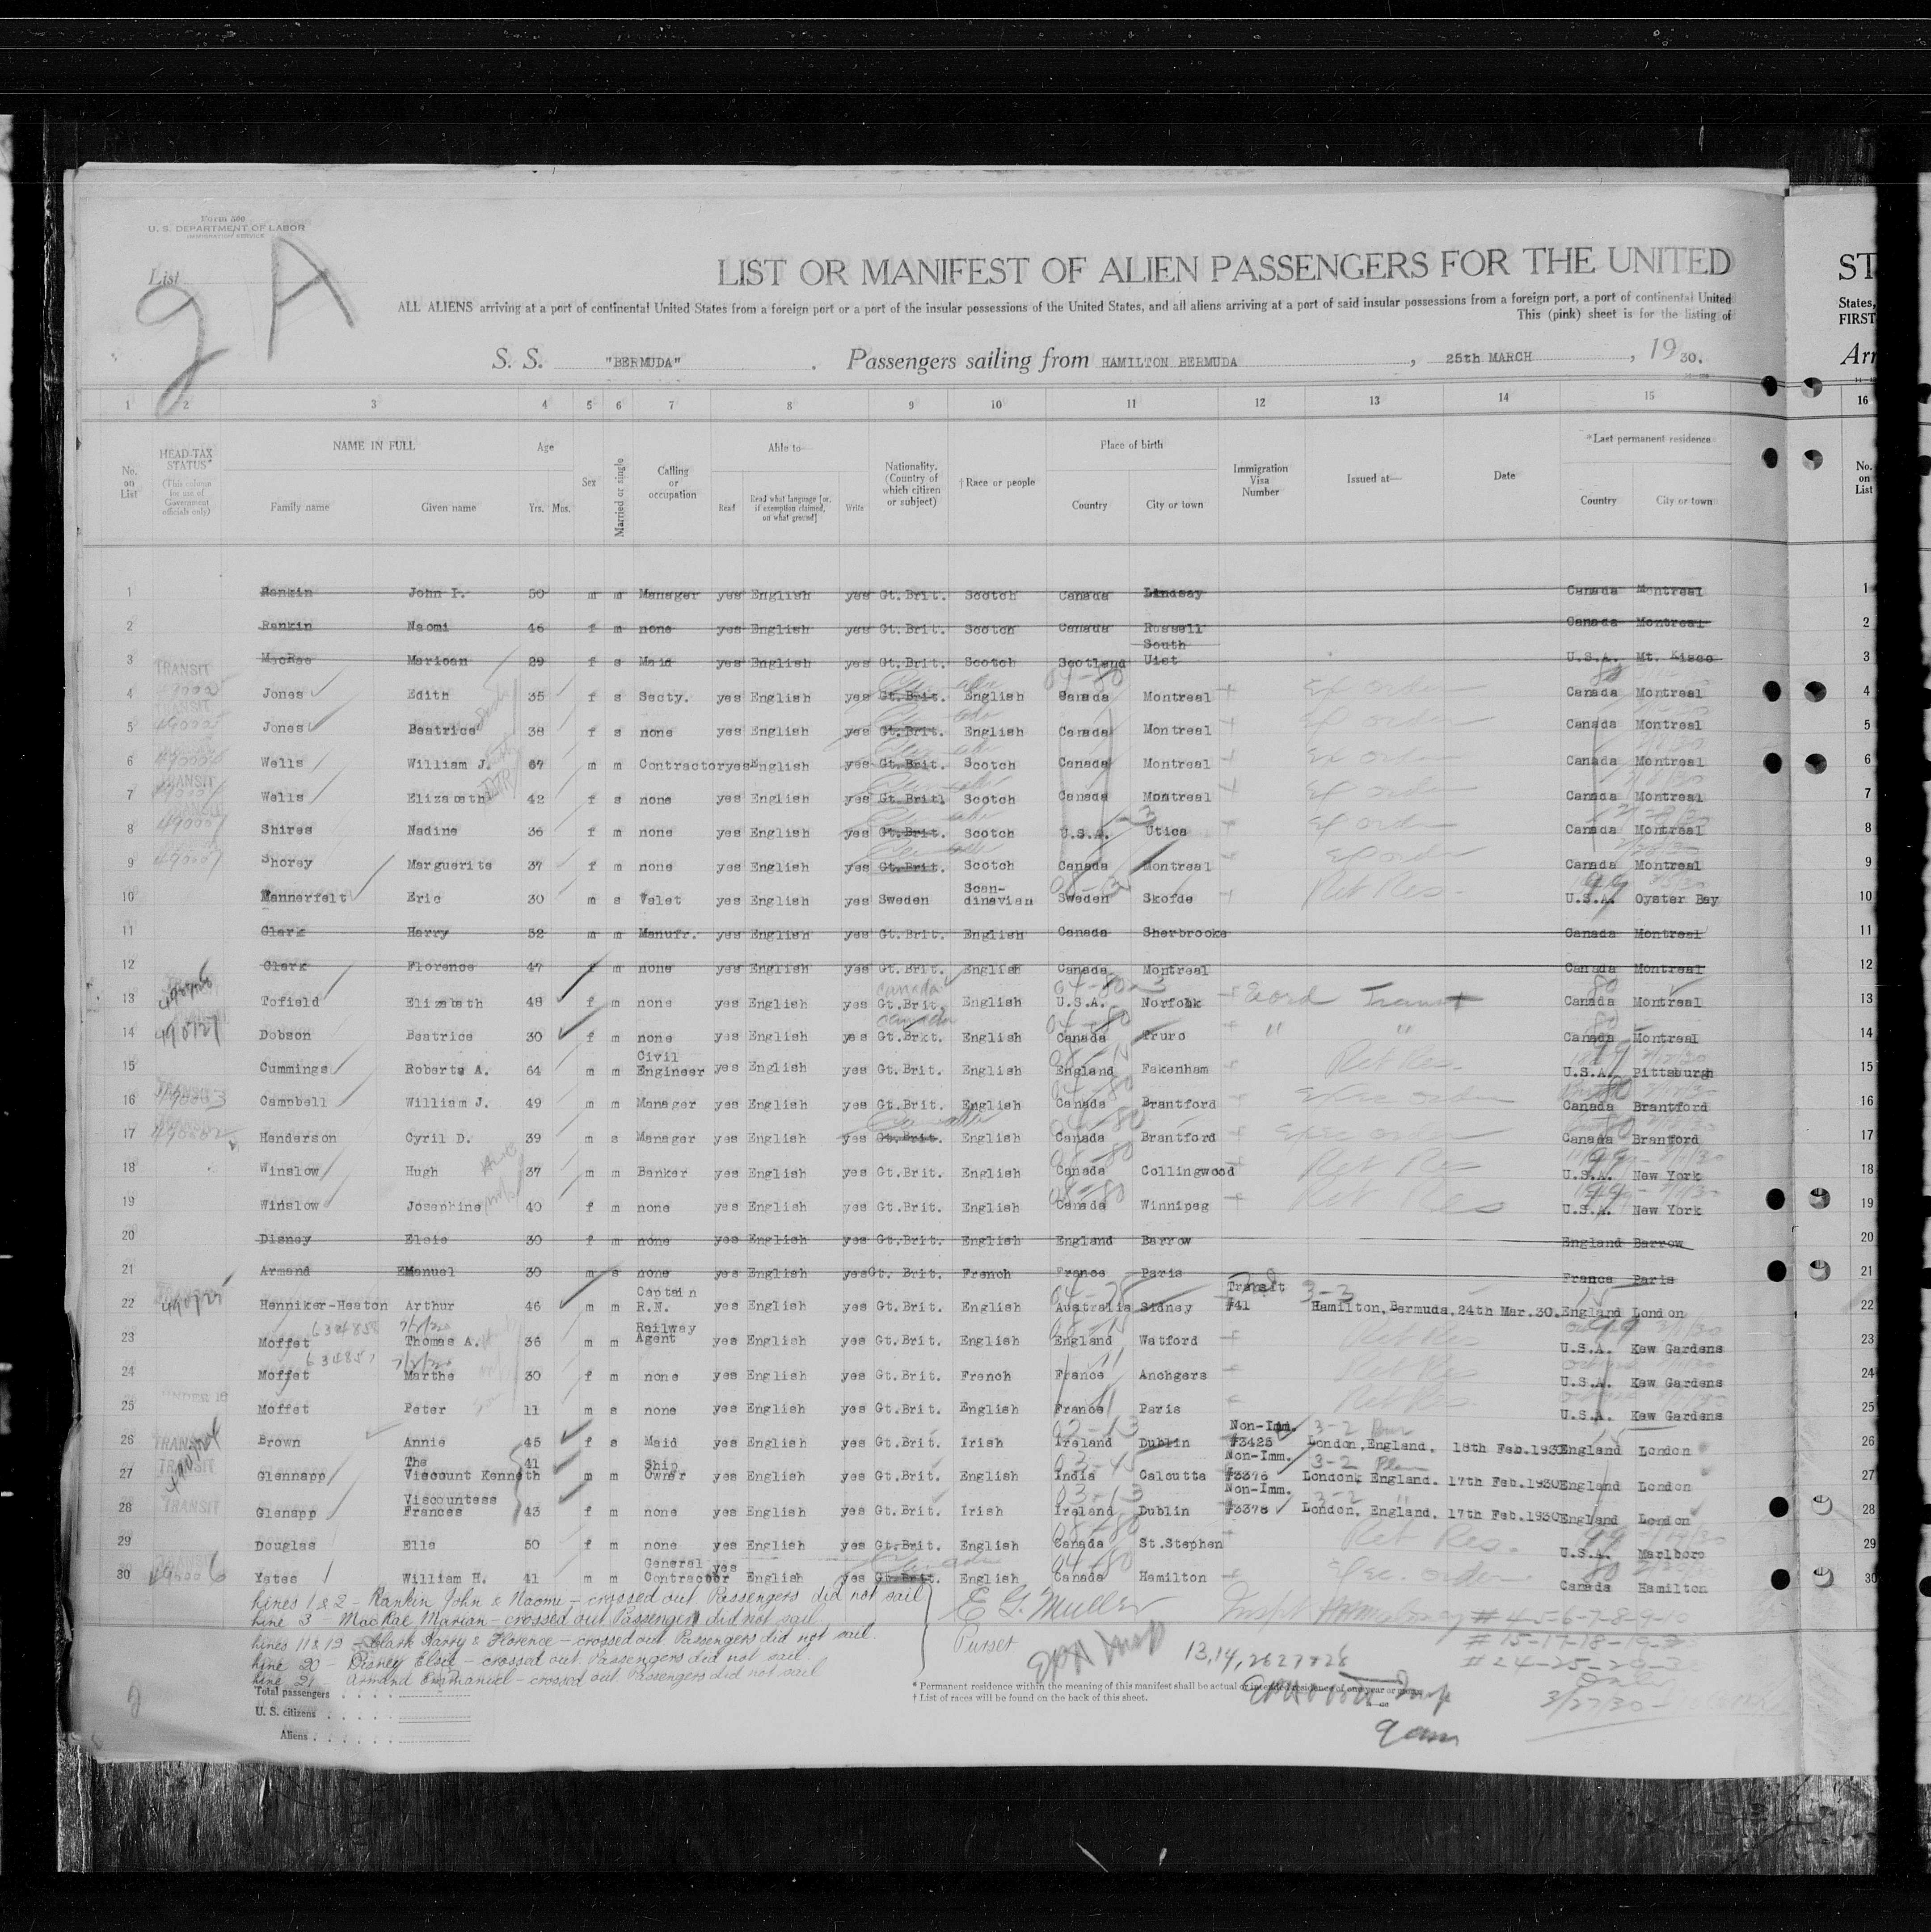 Form 500
U. S. DEPARTMENT OF LABOR
IMMIGRATION SERVICE
List
9 A
LIST OR MANIFEST OF ALIEN PASSENGERS FOR THE UNITED
ST
ALL ALIENS arriving at a port of continental United States from a foreign port or a port of the insular possessions of the United States, and all aliens arriving at a port of said insular possessions from a foreign port, a port of continental United
States,
This (pink) sheet is for the listing of
FIRST
S. S. "BERMUDA" . Passengers sailing from HAMILTON BERMUDA , 25th MARCH , 19 30.
Arr
1 2 3 4 5 6 7 8 9 10 11 12 13 14 15 16
No. on List
HEAD-TAX STATUS* (This column for use of Government officials only)
NAME IN FULL Family name Given name
Age Yrs. Mos.
Sex
Married or single
Calling or occupation
Able to— Read Read what language [or, if exemption claimed, on what ground] Write
Nationality. (Country of which citizen or subject)
† Race or people
Place of birth Country City or town
Immigration Visa Number
Issued at—
Date
*Last permanent residence Country City or town
No. on List
1 Rankin John I. 50 m m Manager yes English yes Gt.Brit. Scotch Canada Lindsay Canada Montreal 1
2 Rankin Naomi 46 f m none yes English yes Gt.Brit. Scotch Canada Russell Canada Montreal 2
3 TRANSIT MacRae Marioan 29 f s Maid yes English yes Gt.Brit. Scotch Scotland South Uist U.S.A. Mt. Kisco 3
4 TRANSIT Jones Edith 35 f s Secty. yes English yes Gt.Brit. English Canada Montreal Ex order Canada Montreal 4
5 Jones Beatrice 38 f s none yes English yes Gt.Brit. English Canada Montreal Ex order Canada Montreal 5
6 Wells William J. 67 m m Contractor yes English yes Gt.Brit. Scotch Canada Montreal Ex order Canada Montreal 6
7 TRANSIT Wells Elizabeth 42 f s none yes English yes Gt.Brit. Scotch Canada Montreal Ex order Canada Montreal 7
8 Shires Nadine 36 f m none yes English yes Gt.Brit. Scotch U.S.A. Utica Ex order Canada Montreal 8
9 Shorey Marguerite 37 f m none yes English yes Gt.Brit. Scotch Canada Montreal Ex order Canada Montreal 9
10 Wannerfelt Eric 30 m s Valet yes English yes Sweden Scan-dinavian Sweden Skofde Ret Res- U.S.A. Oyster Bay 10
11 Clark Harry 52 m m Manufr. yes English yes Gt.Brit. English Canada Sherbrooke Canada Montreal 11
12 Clark Florence 47 f m none yes English yes Gt.Brit. English Canada Montreal Canada Montreal 12
13 Tofield Elizabeth 48 f m none yes English yes Canada Gt.Brit. English 04-80-3 U.S.A. Norfolk Transit 80 Canada Montreal 13
14 Dobson Beatrice 30 f m none yes English yes Canada Gt.Brkt. English 04-80 Canada Truro " " 80 Canada Montreal 14
15 Cummings Roberts A. 64 m m Civil Engineer yes English yes Gt.Brit. English England Fakenham Ret Res. 99 U.S.A. Pittsburgh 15
16 TRANSIT Campbell William J. 49 m m Manager yes English yes Gt.Brit. English 04-80 Canada Brantford Exec order 80 Canada Brantford 16
17 Henderson Cyril D. 39 m s Manager yes English yes Gt.Brit. English 04-80 Canada Brantford Exec order 80 Canada Branford 17
18 Winslow Hugh 37 m m Banker yes English yes Gt.Brit. English 08-80 Canada Collingwood Ret Res 99 U.S.A. New York 18
19 Winslow Josephine 40 f m none yes English yes Gt.Brit. English 08-80 Canada Winnipeg Ret Res 99 U.S.A. New York 19
20 Disney Elsie 30 f m none yes English yes Gt.Brit. English England Barrow England Barrow 20
21 Armand EManuel 30 m s none yes English yes Gt. Brit. French France Paris France Paris 21
22 Henniker-Heaton Arthur 46 m m Captain R.N. yes English yes Gt.Brit. English Australia Sidney Transit #41 3-3 Hamilton, Bermuda, 24th Mar.30. England London 22
23 Moffet 634858 Thomas A. 36 m m Railway Agent yes English yes Gt.Brit. English England Watford Ret Res 99 U.S.A. Kew Gardens 23
24 Moffet 634857 Marthe 30 f m none yes English yes Gt.Brit. French France Anchgers Ret Res U.S.A. Kew Gardens 24
25 UNDER 16 Moffet Peter 11 m s none yes English yes Gt.Brit. English France Paris Ret Res. U.S.A. Kew Gardens 25
26 TRANSIT Brown Annie 45 f s Maid yes English yes Gt.Brit. Irish Ireland Dublin Non-Imm. #3425 3-2 London, England. 18th Feb.1930 England London 26
27 TRANSIT Glennapp The Viscount Kenneth 41 m m Ship Owner yes English yes Gt.Brit. English India Calcutta Non-Imm. #3376 3-2 London, England. 17th Feb.1930 England London 27
28 TRANSIT Glenapp Viscountess Frances 43 f m none yes English yes Gt.Brit. Irish Ireland Dublin Non-Imm. #3378 3-2 " London, England. 17th Feb.1930 England London 28
29 Douglas Ella 50 f m none yes English yes Gt.Brit. English 08-80 Canada St.Stephen Ret Res. 99 U.S.A. Marlboro 29
30 TRANSIT Yates William H. 41 m m General Contractor yes English yes Gt.Brit. English 04-80 Canada Hamilton Exec. order 80 Canada Hamilton 30
Lines 1 & 2 - Rankin John & Naomi - crossed out Passengers did not sail
Line 3 - MacRae Marian - crossed out Passenger did not sail
Lines 11 & 12 - Clark Harry & Florence - crossed out Passengers did not sail
Line 20 - Disney Elsie - crossed out Passengers did not sail
Line 21 Armand Emmanuel - crossed out Passengers did not sail
E G. Muller
Purser
# 4-5-6-7-8-9-10
# 15-17-18-19-
# 24-25-29-3
13,14,26 27 & 28
3/27/30-
Total passengers
U. S. citizens
Aliens
* Permanent residence within the meaning of this manifest shall be actual or intended residence of one year or more.
† List of races will be found on the back of this sheet.